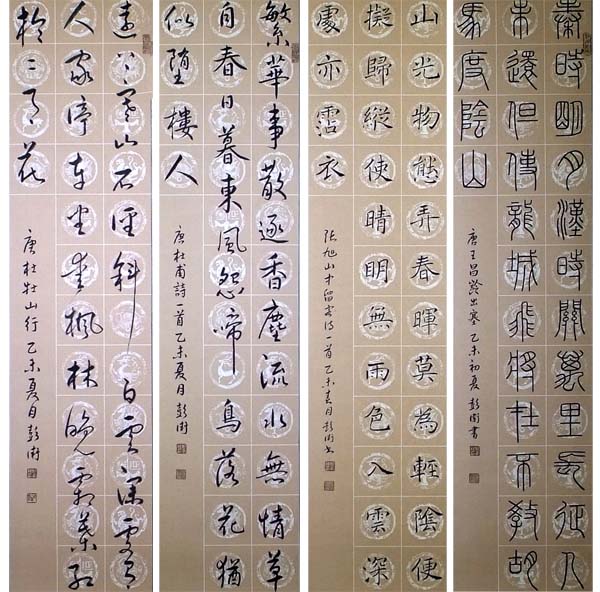 秦時明月漢時關萬里長征人
未還但使龍城飛將在不教胡
馬度陰山
唐王昌齡出塞 乙未初夏 彭衛書
山光物態弄春暉莫為輕陰便
擬歸縱使晴明無雨色入雲深
處亦霑衣
張旭山中留客詩一首 乙未夏月 彭衛書
繁華事散逐香塵流水無情草
自春日暮東風怨啼鳥落花猶
似墮樓人
唐杜甫詩一首 乙未夏月 彭衛
遠上寒山石徑斜白雲深處有
人家停車坐愛楓林晚霜葉紅
於二月花
唐杜牧山行 乙未夏月 彭衛